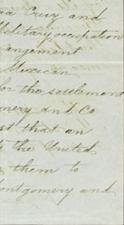 Cruz and
Military occupation
arrangement
Mexican
for the settlement
mery and Co
st that an
the United
them to
ontgomery and